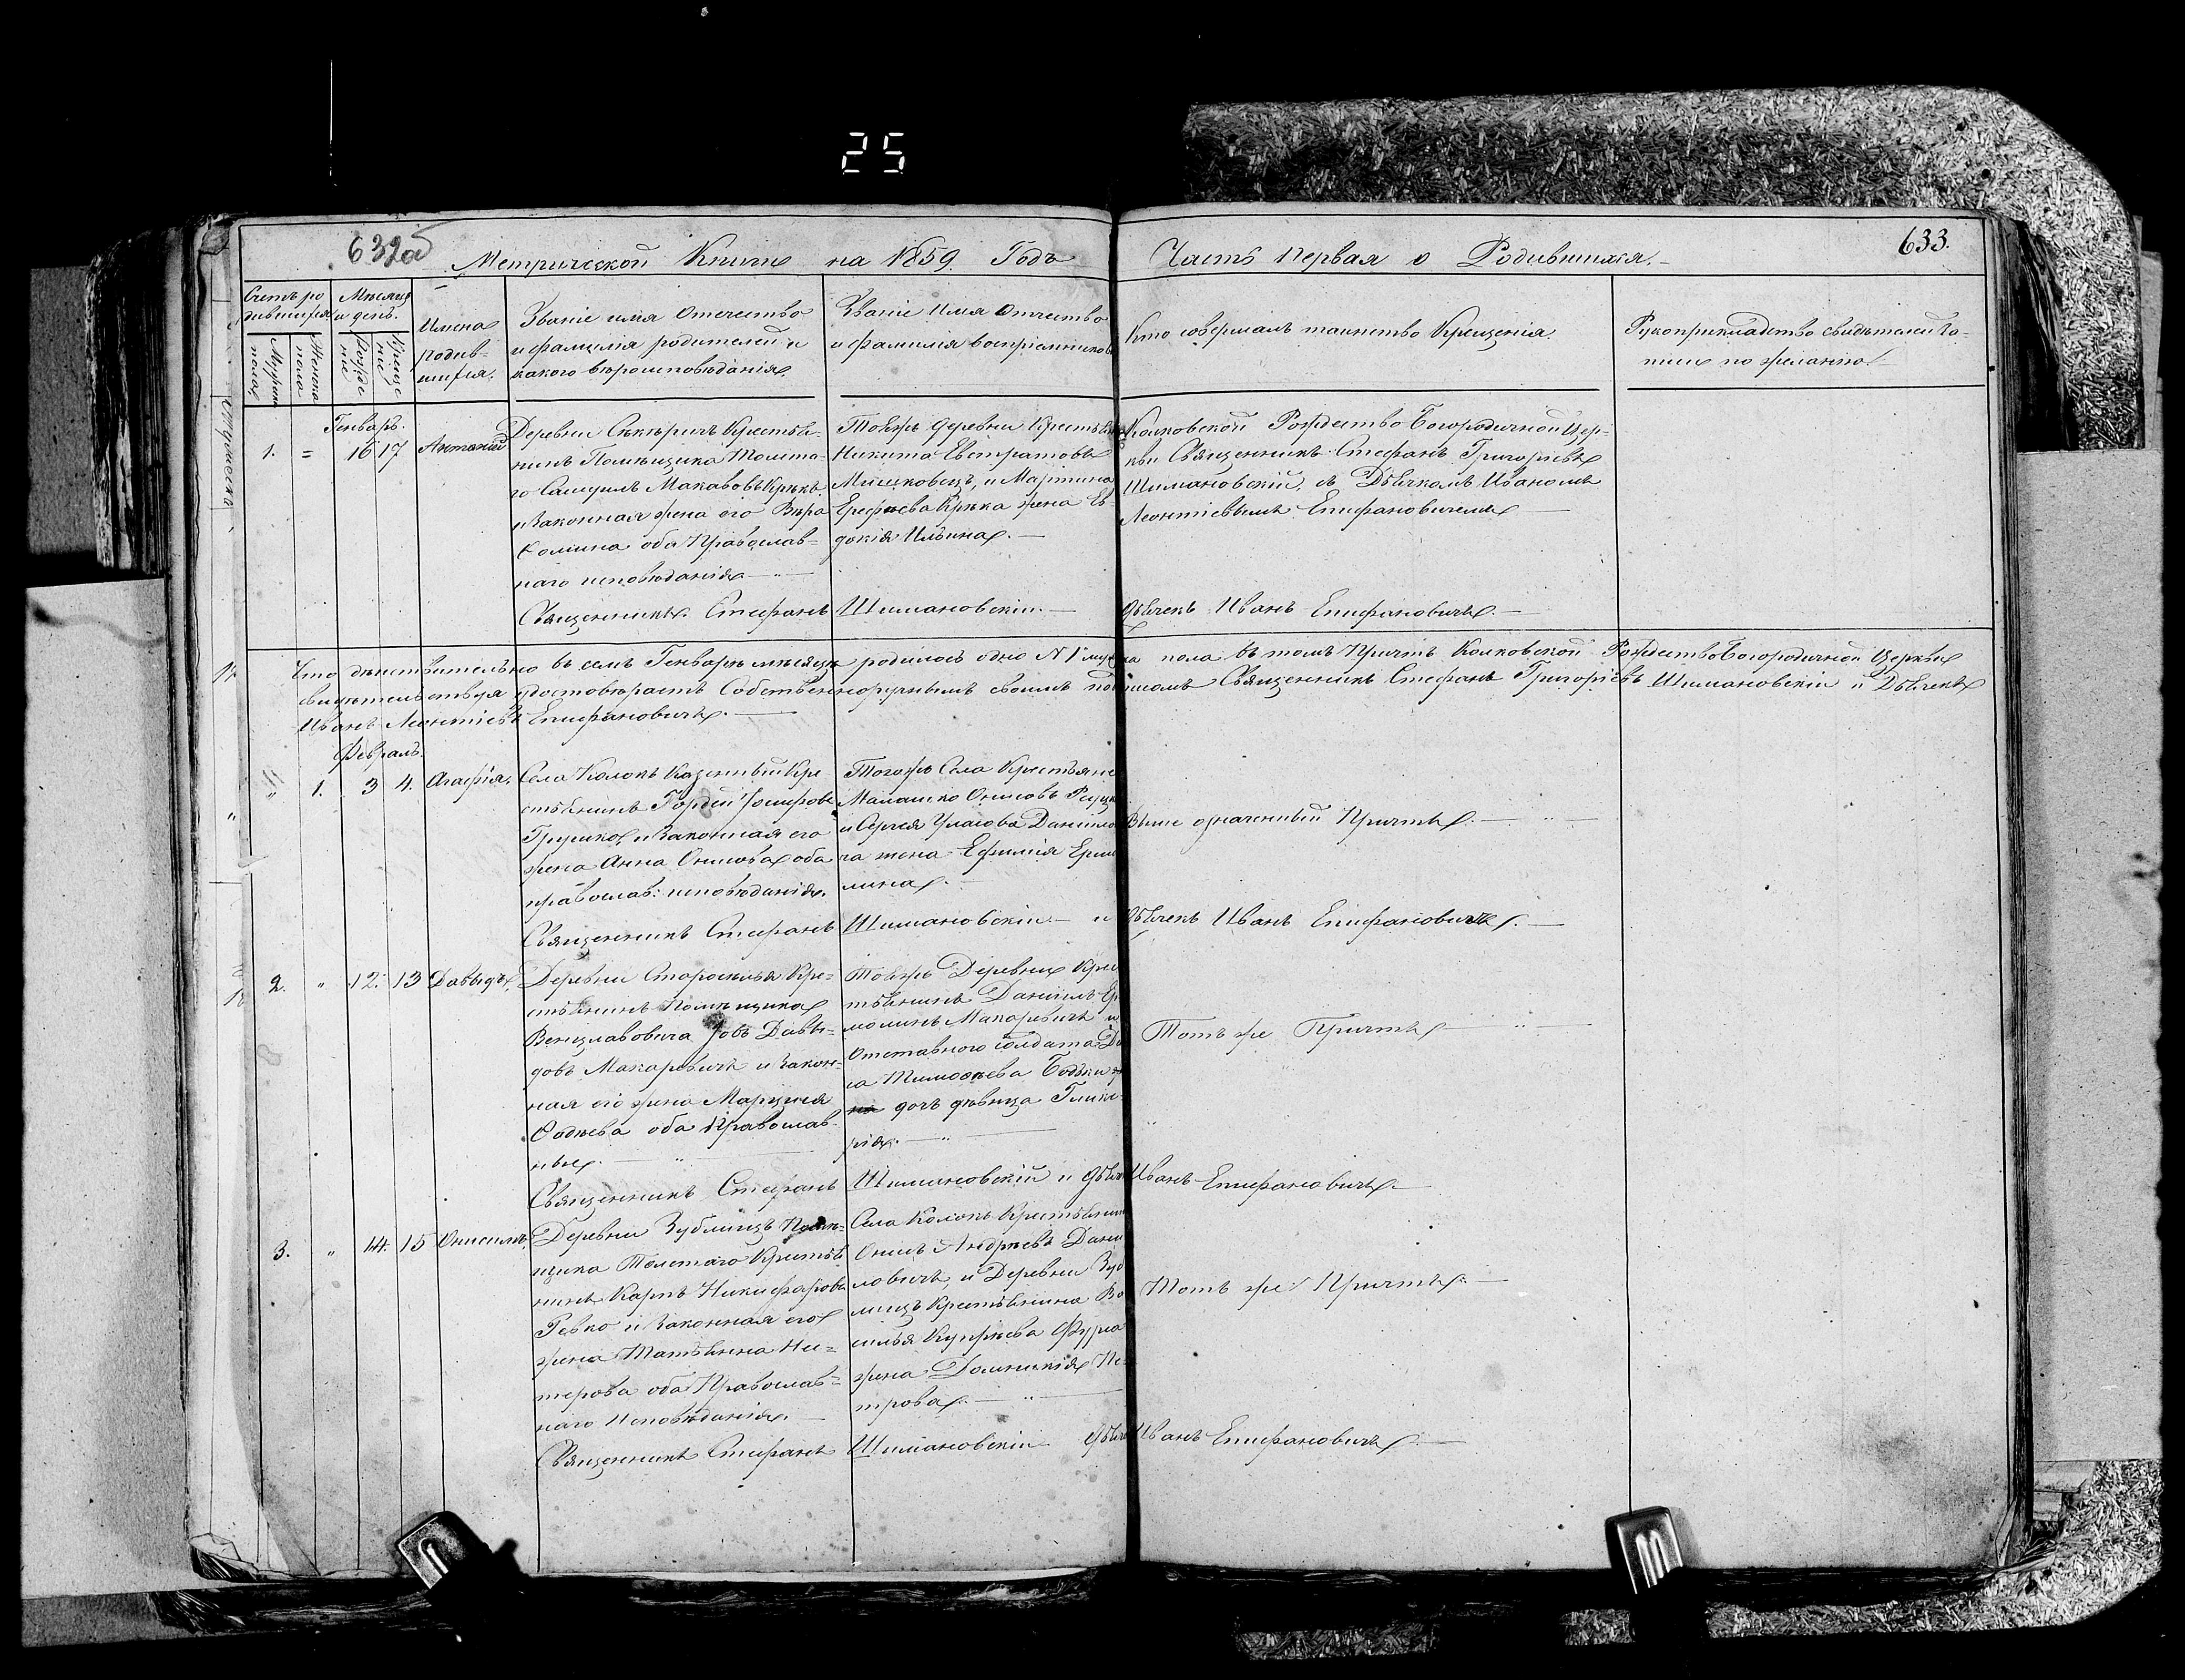 25
632об
633.
Метрической Книги на 1859. Годъ Часть первая о Родившихся.
Счетъ ро
дившихся
Мужеска
пола
Женска
пола
Мѣсяцъ
и день.
Рожде
нія
Креще
нія
Имена
родив-
шихся.
Званіе имя отечество
и фамилія родителей и
какого вѣроисповѣданія.
Званіе имя отчество
и фамилія воспріемниковъ
Кто совершалъ таинство Крещенія.
Рукоприкладство свидѣтелей
по желанію.
Генварь.
1. = 16 17 Антоній
Деревни Крестья-
нинъ Помѣщика Толста-
го Самуилъ
и законная жена его Вѣра
Ѳомина оба Православ-
наго исповѣданія
Тойжъ деревни Крестьян
Никита Евстратовъ
Мицковецъ, и Мартина
жена Ев-
докія Ильина.
Колковской Рождество-Богородичной Цер-
кви Священникъ Стефанъ Григорьевъ
Шимановскій, съ Дьячкомъ Иваномъ
Леонтіевымъ Епифановичемъ
Священникъ Стефанъ Шимановскій. Дьячекъ Иванъ Епифановичъ.
Что дѣйствительно въ семъ Генварѣ мѣсяцѣ родилось одно № 1 муж. пола въ томъ Причтъ Колковской Рождество Богородичной Церкви
свидѣтельствуя удостовѣряетъ Собственноручнымъ своимъ подписомъ Священникъ Стефанъ Григоріевъ Шимановскій и Дьячекъ
Иванъ Леонтіевъ Епифановичъ.
Февраль.
" 1. 3 4. Агафія.
Села Колокъ Казенный Кре
стьянинъ Гордій Іосифовъ
Грушко, и Законная его
жена Анна Онисова оба
православ: исповѣданія.
Тогожъ Села Крестьяне
Малашко Онисовъ
и Сергея Уласова Данило
ва жена Ефимія Ермо
лина.
Выше означенный Причтъ.
Священникъ Стефанъ Шимановскій и Дьячекъ Иванъ Епифановичъ.
2. " 12. 13 Давыдъ.
Деревни Староселья Кре-
стьянинъ Помѣщика
Венцлавовича Іовъ Давы-
довъ Макаревичъ и закон-
ная его жена Марцеля
Ѳадѣева оба Православ-
ные.
Тойжъ Деревни Крес
тьянинъ Даніилъ Ер
молинъ Макаревичъ и
Отставного солдата
Тимоѳеева
дочь дѣвица Глике-
рія.
Тотъ же Причтъ
Священникъ Стефанъ Шимановскій и Дьяч Иванъ Епифановичъ.
3. " 14. 15 Онисимъ.
Деревни Зублищъ Помѣ-
щика Толстаго Крестья
нинъ Карпъ Никифоровъ
Ревко и Законная его
жена Татьянна Не-
терова оба Православ-
наго Исповѣданія.
Села Колокъ Крестьянин
Онисъ Андрѣевъ Дани
ловичъ, и Деревни Зуб
лищъ Крестьянина Ва
силья Фурса
жена Домникія Пе-
трова.
Тотъ же Причтъ.
Священникъ Стефанъ Шимановскій Дьяч Иванъ Епифановичъ.